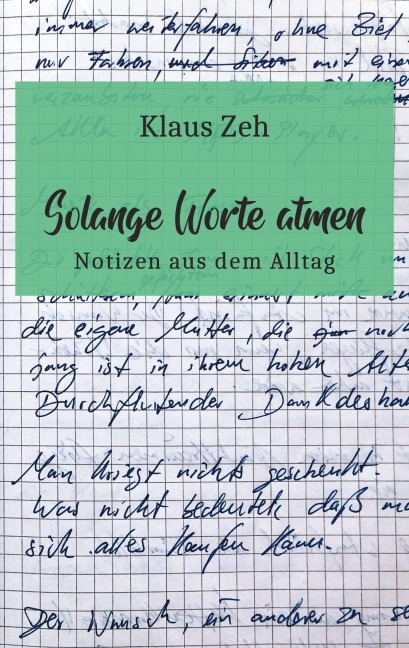 immer weiterfahren, ohne Ziel,
nur Fahren, und mit einer
Klaus Zeh
Solange Worte atmen
Notizen aus dem Alltag
die eigene Mutter, die noch
jung ist in ihrem hohen Alter
Durchflutender Dank deshalb
Man kriegt nichts geschenkt.
Was nicht bedeutet, daß ma
sich alles kaufen kann.
Der Wunsch, ein anderer zu se